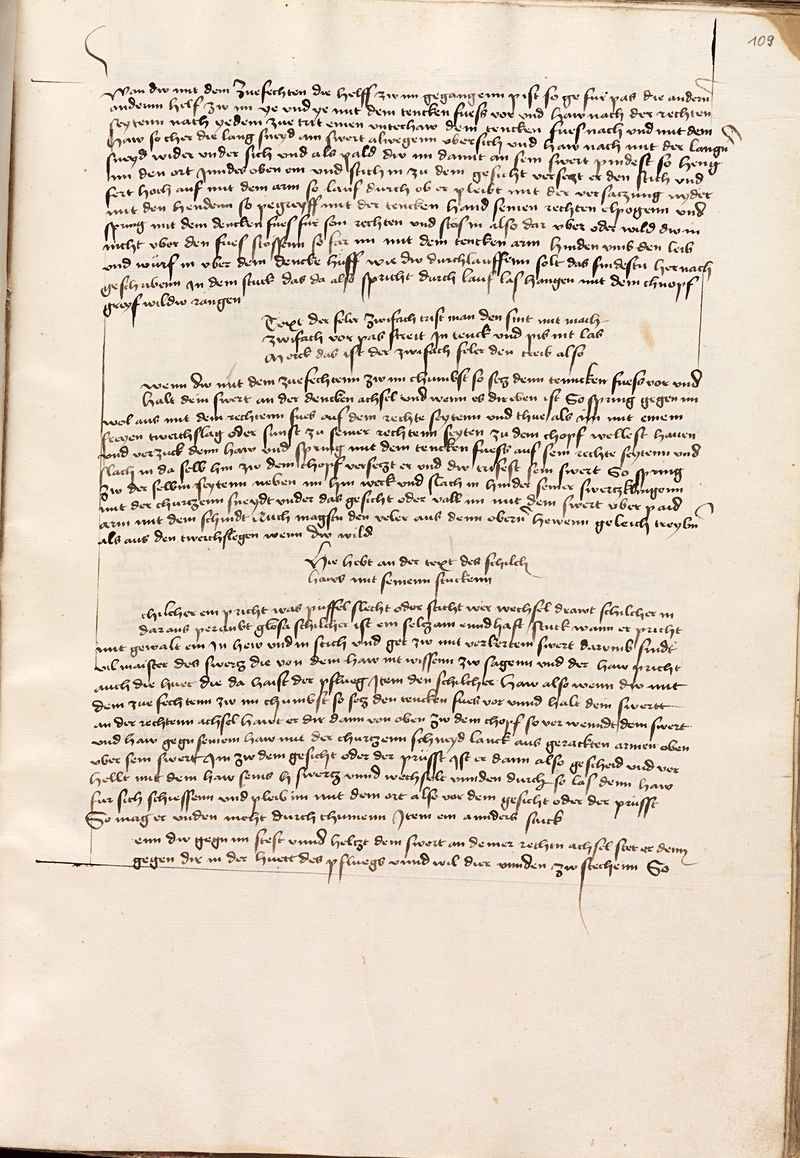 109
Wan dw mit dem zuefechten die helff zw im gegangenn pist so ge fur pas die andern
andernn helf zw im ye und ye mit dem tencken fuess vor und haw nach der rechten
seytenn nach yedem zue trit einen unterhaw dem tencken fues nach und mit dem
haw so cher die lang sneyd am swert alwegenn ubersich und haw nach mit der langn
sneyd wider under sich und als pald dw im damit an sein swert pindest so heng
im den ort Inndes oben ein und stich in zu dem gesicht versetzt er den stich und
fert hoch auf mit dem arm so lauf durch ob er pleibt mit der versatzung nyder
mit den hendenn so pegreyff mit der tencken hand seinen rechten elpogenn und
spring mit dem dencken fues fur sein rechten und stos in also dar uber oder wild dw in
nicht uber den fues stossenn so far im mit dem tencken arm hinden umb den leib
und würf in uber dein dencke huff wie dw durchlauffenn solt das findestu hernach
geschribenn In dem stuck das da also spricht durch lauf las hangen mit dem chnopf
greyf wildw rangen
Text der feler zwifach trift man den snit mit mach
zwifach vor pas streit In tenck und pis nit las
Merck das ist der zwifach feler den treib also
wenn dw mit dem zuefechtenn zw im chumbst so setz denn tenncken fuess vor und
halt dein swert an der dencken achsel und wenn es dir eben ist So spring gegen im
wol aus mit dem rechtenn fues auf dein rechte seytenn und thue als im mit einem
freyen twerchslag oder sunst zu seiner rechtenn seyten zu dem chopf wellest hauen
und verzuck denn haw und spring mit dem tencken fuess auf sein rechte seytenn und
slach in da selb hin zw dem chopf versetzt er und dw triffest sein swert So spring
zw der selbm seytenn neben im hin werk und slach in hinder seiner swertzklingenn
mit der churtzenn sneydt under das gesicht oder vall im mit dem swert uber paid
arm mit dem schnidt Auch magstu den veler aus denn obern hewenn geleich treybm
als aus den twerchslegen wenn dw wild
Hie hebt an der text des schilch
haws mit seinenn stuckenn
chilcher ein pricht was puffel slecht oder sticht wer wechsel drawt schilcher in
daraus peraubt glosa schilcher ist ein seltzam ernndhaft stuck wann er pricht
mit gewalt ein In hew und in stich und get zw mit verkertem swert darumb sindt
vil maister des swertz die von dem haw nit wissenn zw sagenn und der haw pricht
auch die huet die da haist der pflueg Item den schilcher haw also wenn dw mit
dem zue fechtenn zw im chumbst so setz den tencken fues vor unnd halt dein swertt
an der rechtenn achsel hawt er dir dann von oben zw dem chopf so ver wenndt dein swert
und haw gegn seinem haw mit der churtzenn schneyd lanck aus gerackten armen oben
uber sein swert Im zw dem gesicht oder der prüsst Ist er dann also gescheid und ver
hellt mit dem haw seins h swertz unnd wechselt unnden durch so las denn haw
fur sich schiessenn und pleib im mit dem ort also vor dem gesicht oder der prüsst
So mag er unden nicht durch chumenn Item ein annders stuck
enn dw gegn im stest unnd heltzt dein swert an deiner rechtn achsel stet er denn
gegen dir in der huett des pfluegs unnd wil dier unnden zw stechenn So